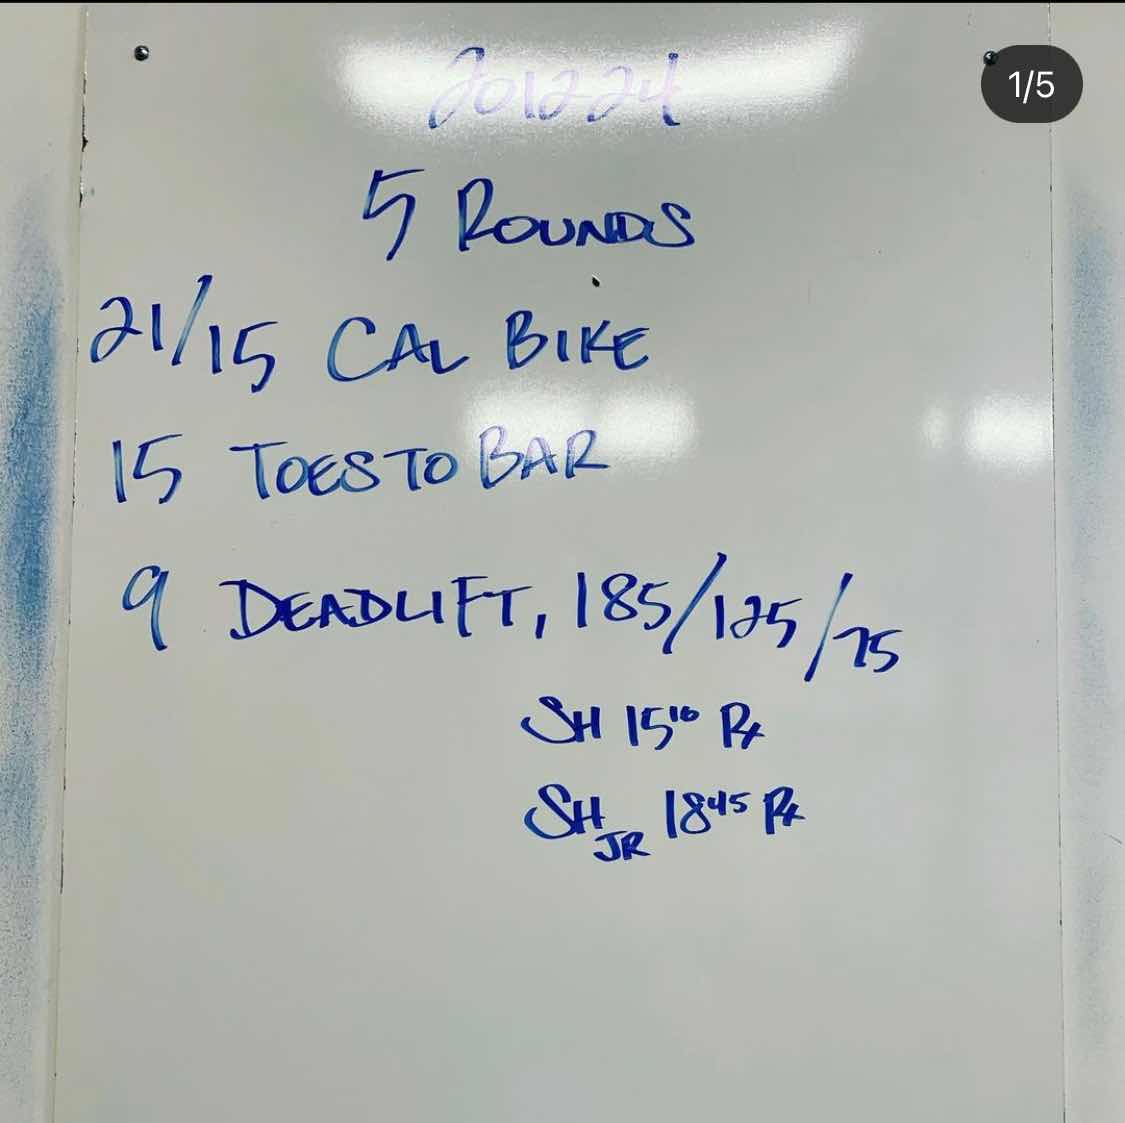 201224
1/5
5 ROUNDS
21/15 CAL BIKE
15 TOES TO BAR
9 DEADLIFT, 185/125/75
SH 15¹⁰ Rx
SH JR 18⁴⁵ Rx